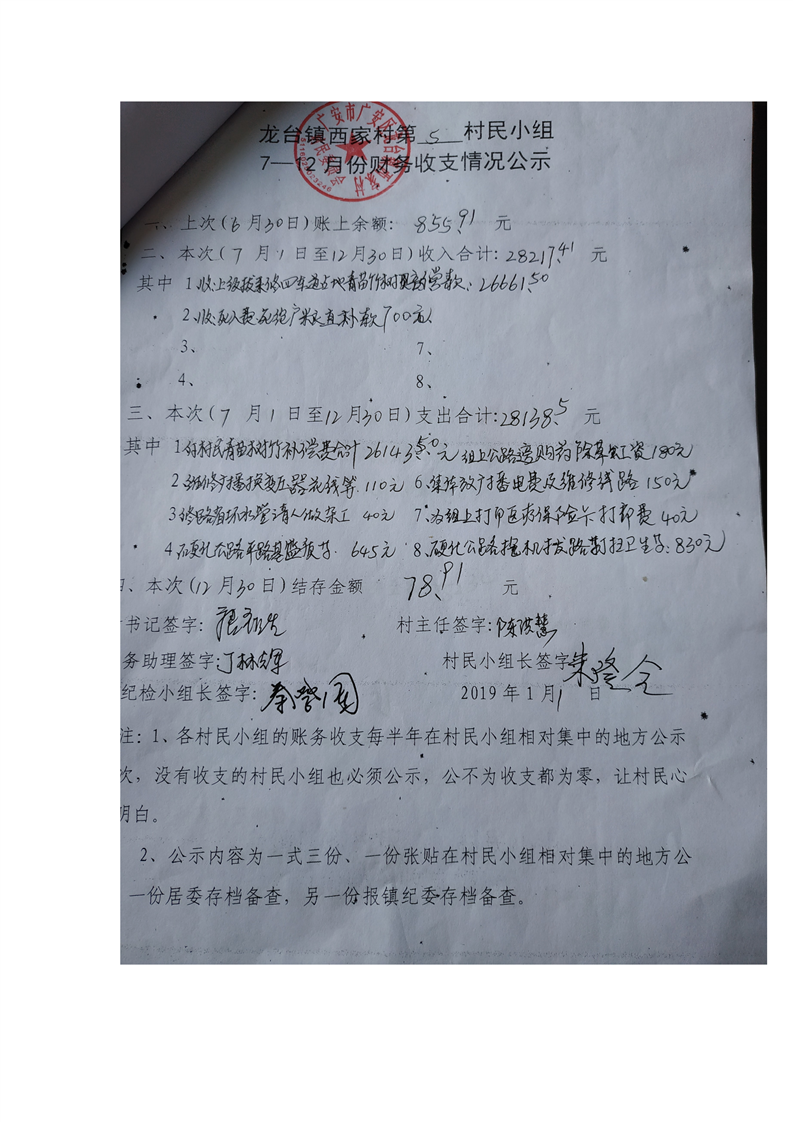 龙台镇西家村第5村民小组
7—12月份财务收支情况公示
一、上次(6月30日)账上余额: 855.91 元
二、本次(7月1日至12月30日)收入合计:28217.41 元
其中 1、收上级拨来修四车道占地青苗竹树款: 26661.50
2、收 直补款700元
3、 7、
4、 8、
三、本次(7月1日至12月30日)支出合计:28138.5 元
其中 1、付村民青苗树竹补偿费合计 26143.50元 组上公路 购药除草 工资180元
2、维修广播换变压器花线等.110元 6、集体放广播电费及维修线路150元
3、修路 请人做杂工 40元 7、为组上打印医疗保险卡打印费40元
4、硬化公路平路基 645元 8、硬化公路 挖机 打扫卫生等:830元
、本次(12月30日)结存金额 78.91 元
书记签字: 村主任签字:
务助理签字: 村民小组长签字
纪检小组长签字: 2019年1月1日
注:1、各村民小组的账务收支每半年在村民小组相对集中的地方公示
次,没有收支的村民小组也必须公示,公不为收支都为零,让村民心
明白。
2、公示内容为一式三份、一份张贴在村民小组相对集中的地方公
一份居委存档备查,另一份报镇纪委存档备查。